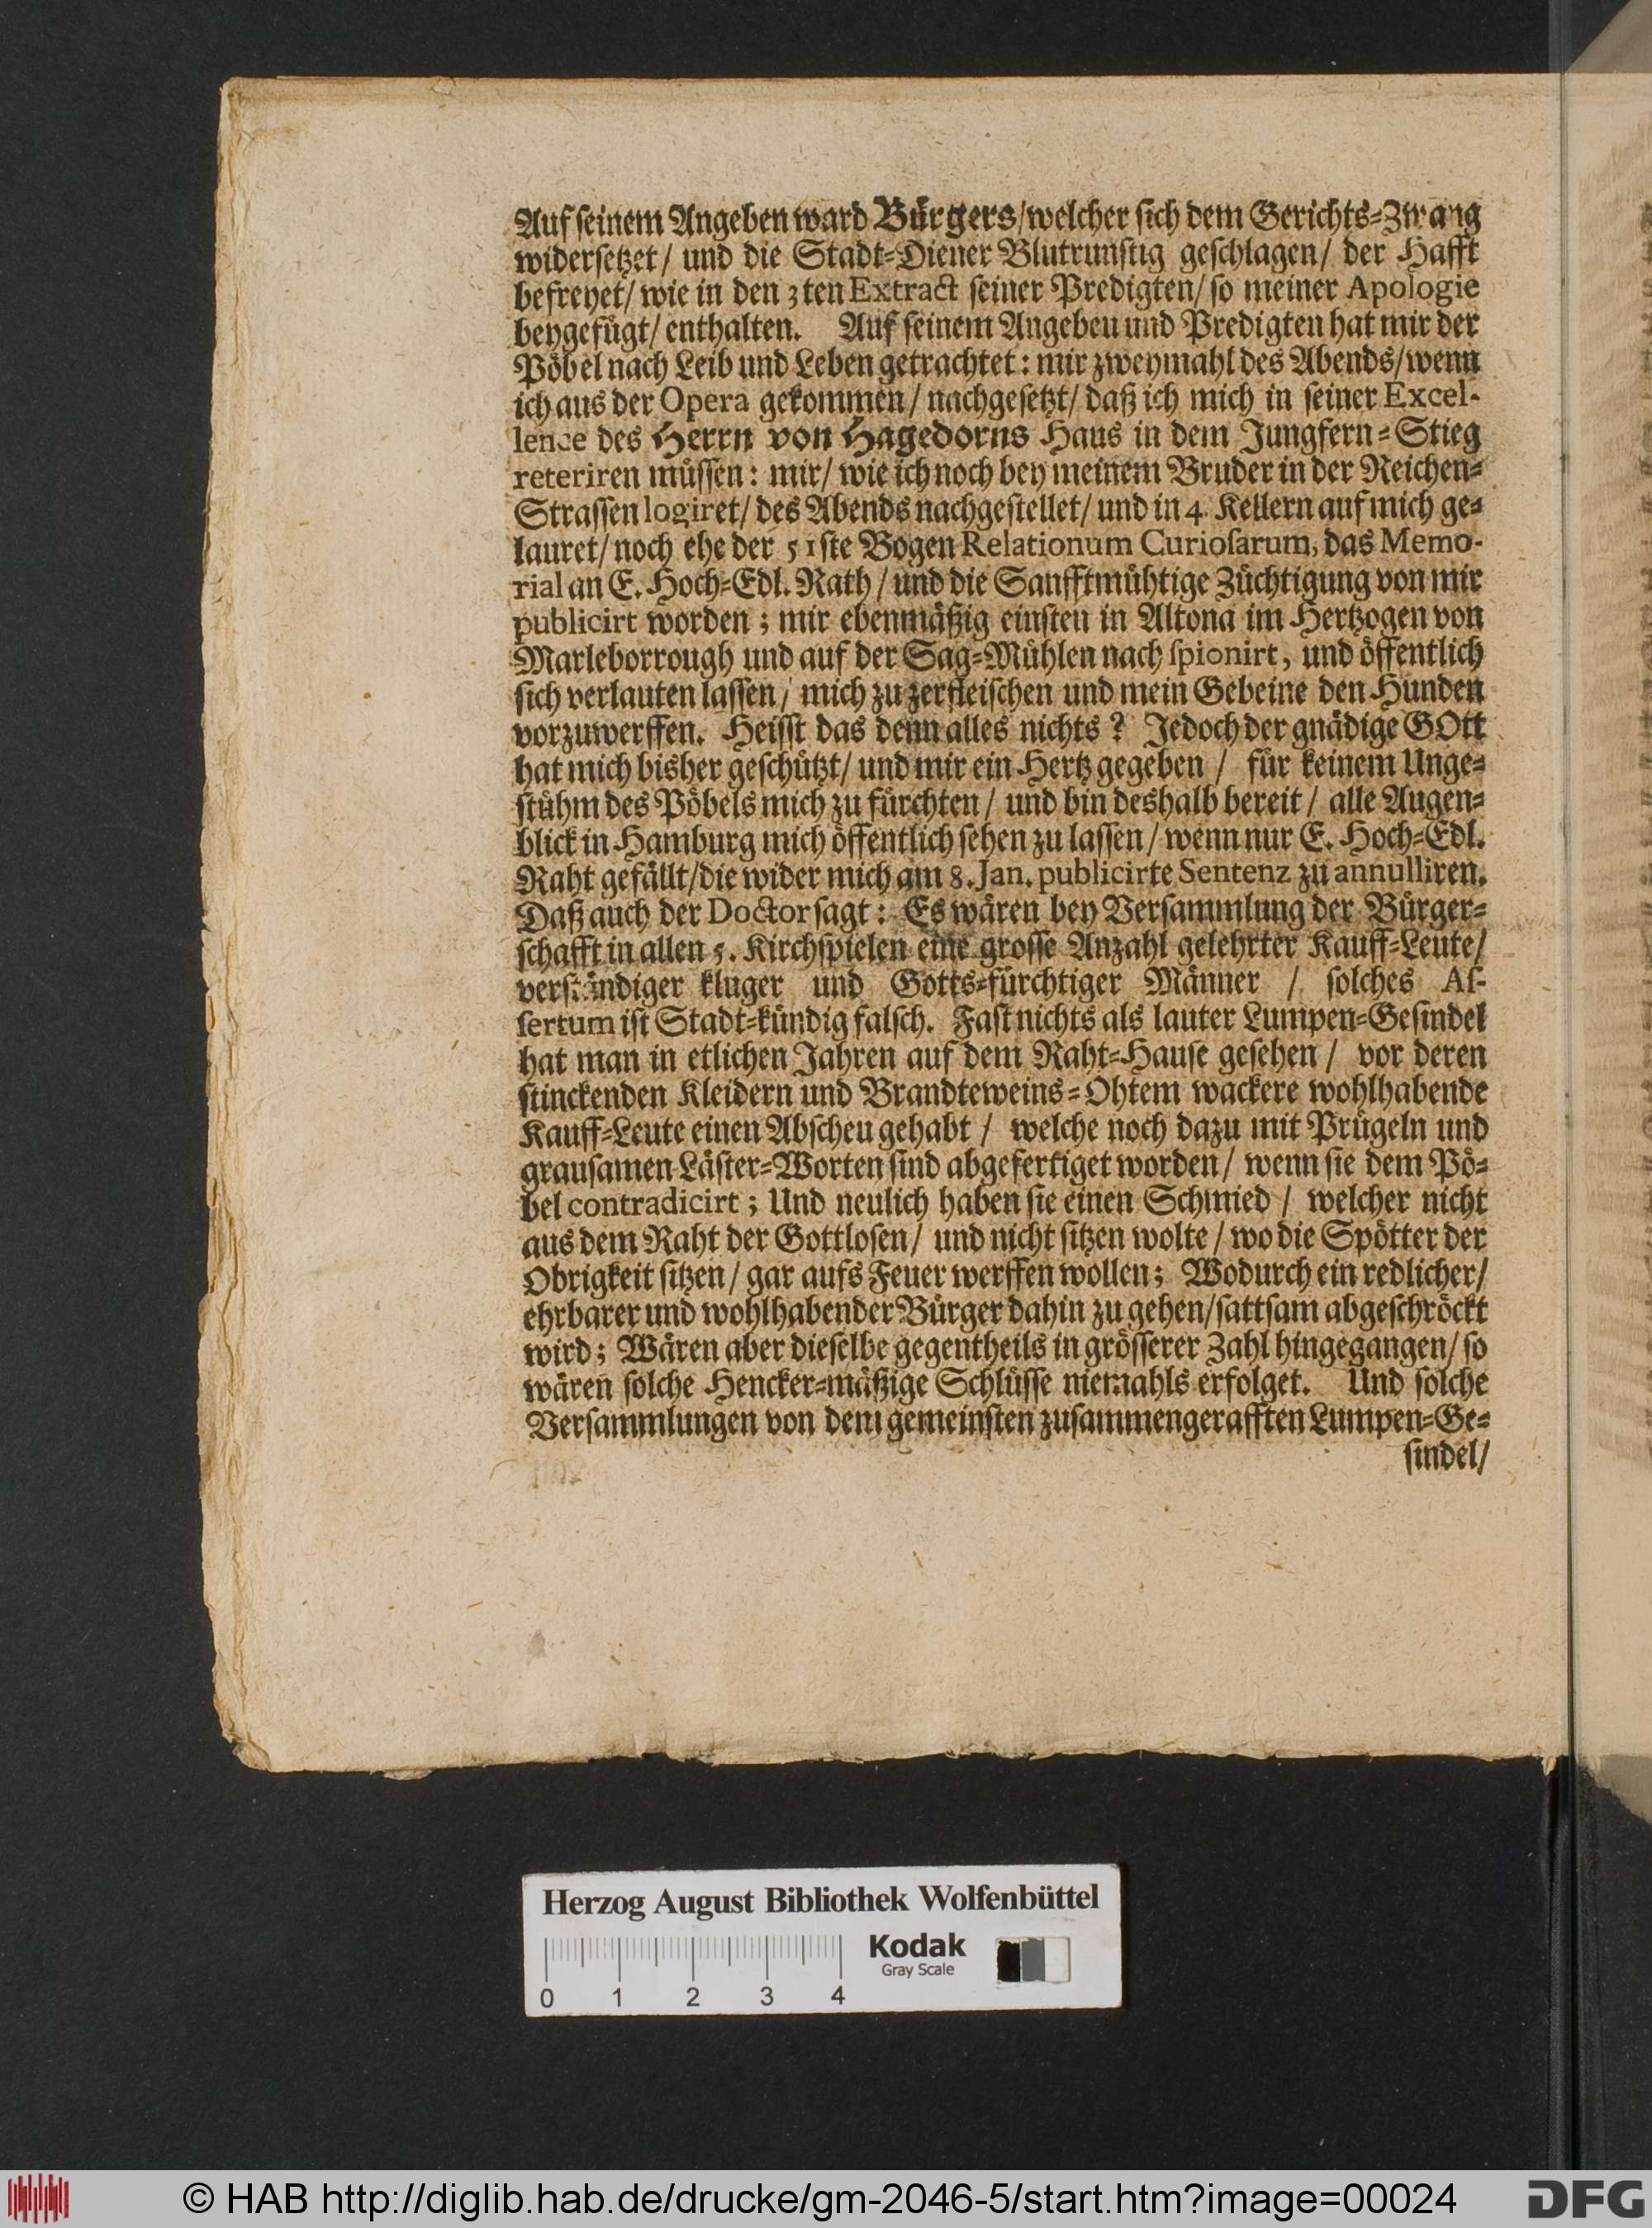 Auf seinem Angeben ward Bürgers/welcher sich dem Gerichts=Zwang
widersetzet/ und die Stadt=Diener Blutrunstig geschlagen/ der Hafft
befreyet/ wie in den 3ten Extract seiner Predigten/ so meiner Apologie
beygefügt/ enthalten. Auf seinem Angeben und Predigten hat mir der
Pöbel nach Leib und Leben getrachtet: mir zweymahl des Abends/wenn
ich aus der Opera gekommen/ nachgesetzt/ daß ich mich in seiner Excel-
lence des Herrn von Hagedorns Haus in dem Jungfern=Stieg
reteriren müssen: mir/ wie ich noch bey meinem Bruder in der Reichen=
Strassen logiret/ des Abends nachgestellet/ und in 4. Kellern auf mich ge=
lauret/ noch ehe der 51ste Bogen Relationum Curioſarum, das Memo-
rial an E. Hoch=Edl. Rath/ und die Sanfftmühtige Züchtigung von mir
publicirt worden; mir ebenmäßig einsten in Altona im Hertzogen von
Marleborrough und auf der Sag=Mühlen nach ſpionirt, und öffentlich
sich verlauten lassen/ mich zu zerfleischen und mein Gebeine den Hunden
vorzuwerffen. Heisst das denn alles nichts? Jedoch der gnädige GOtt
hat mich bisher geschützt/ und mir ein Hertz gegeben/ für keinem Unge=
stühm des Pöbels mich zu fürchten/ und bin deshalb bereit/ alle Augen=
blick in Hamburg mich öffentlich sehen zu lassen/ wenn nur E. Hoch=Edl.
Raht gefällt/die wider mich am 8. Jan. publicirte Sentenz zu annulliren.
Daß auch der Doctor sagt: Es wären bey Versammlung der Bürger=
schafft in allen 5. Kirchspielen eine grosse Anzahl gelehrter Kauff=Leute/
verständiger kluger und Gotts=fürchtiger Männer / solches Aſ-
ſertum ist Stadt=kündig falsch. Fast nichts als lauter Lumpen=Gesindel
hat man in etlichen Jahren auf dem Raht=Hause gesehen/ vor deren
stinckenden Kleidern und Brandteweins=Ohtem wackere wohlhabende
Kauff=Leute einen Abscheu gehabt/ welche noch dazu mit Prügeln und
grausamen Läster=Worten sind abgefertiget worden/ wenn sie dem Pö=
bel contradicirt; Und neulich haben sie einen Schmied/ welcher nicht
aus dem Raht der Gottlosen/ und nicht sitzen wolte/ wo die Spötter der
Obrigkeit sitzen/ gar aufs Feuer werffen wollen; Wodurch ein redlicher/
ehrbarer und wohlhabender Bürger dahin zu gehen/sattsam abgeschröckt
wird; Wären aber dieselbe gegentheils in grösserer Zahl hingegangen/ so
wären solche Hencker=mäßige Schlüsse niemahls erfolget. Und solche
Versammlungen von dem gemeinsten zusammengerafften Lumpen=Ge=
sindel/
Herzog August Bibliothek Wolfenbüttel
Kodak
Gray Scale
0 1 2 3 4
© HAB http://diglib.hab.de/drucke/gm-2046-5/start.htm?image=00024
DFG